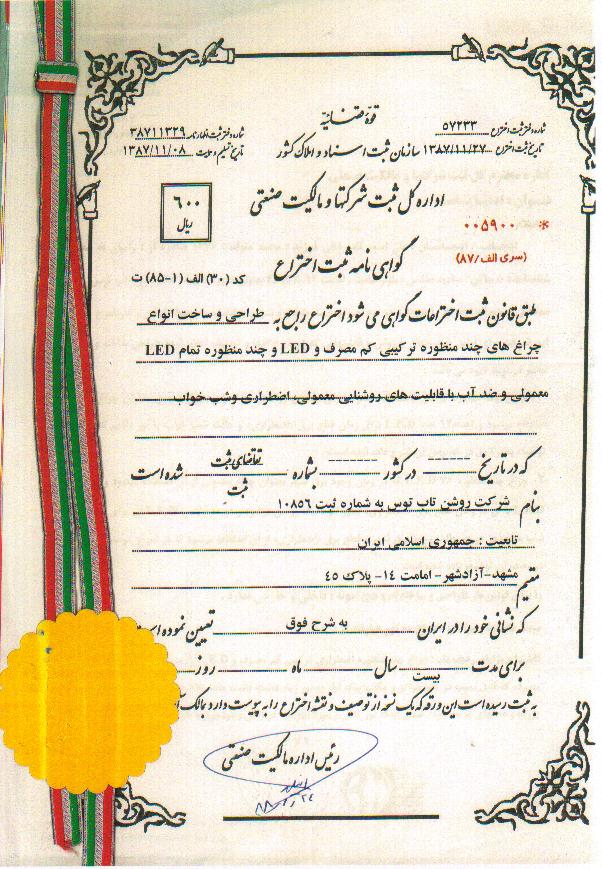 قوه قضائیه
شماره ثبت اختراع ۵۷۲۳۳
شماره دفتر ثبت اظهارنامه ۳۸۷۱۱۳۲۹
تاریخ ثبت اختراع ۱۳۸۷/۱۱/۲۷
سازمان ثبت اسناد و املاک کشور
تاریخ تسلیم ۱۳۸۷/۱۱/۰۸
اداره کل ثبت شرکتها و مالکیت صنعتی
۶۰۰
ریال
* ۰۰۵۹۰۰
(سری الف/۸۷)
گواهی نامه ثبت اختراع
کد (۳۰) الف (۱-۸۵) ت
طبق قانون ثبت اختراعات گواهی می شود اختراع راجع به طراحی و ساخت انواع
چراغ های چند منظوره ترکیبی کم مصرف و LED و چند منظوره تمام LED
معمولی و ضد آب با قابلیت های روشنایی معمولی، اضطراری وشب خواب
که در تاریخ ------ در کشور ------ بشماره تقاضای ثبت شده است
ثبت
بنام شرکت روشن تاب توس به شماره ثبت ۱۰۸۵۶
تابعیت : جمهوری اسلامی ایران
مقیم مشهد-آزادشهر- امامت ۱۴- پلاک ۴۵
که نشانی خود را در ایران به شرح فوق تعیین نموده
برای مدت بیست سال ماه روز
به ثبت رسیده است این ورقه که یک نسخه از توصیف و نقشه اختراع را به پیوست دارد بمالک
رئیس اداره مالکیت صنعتی